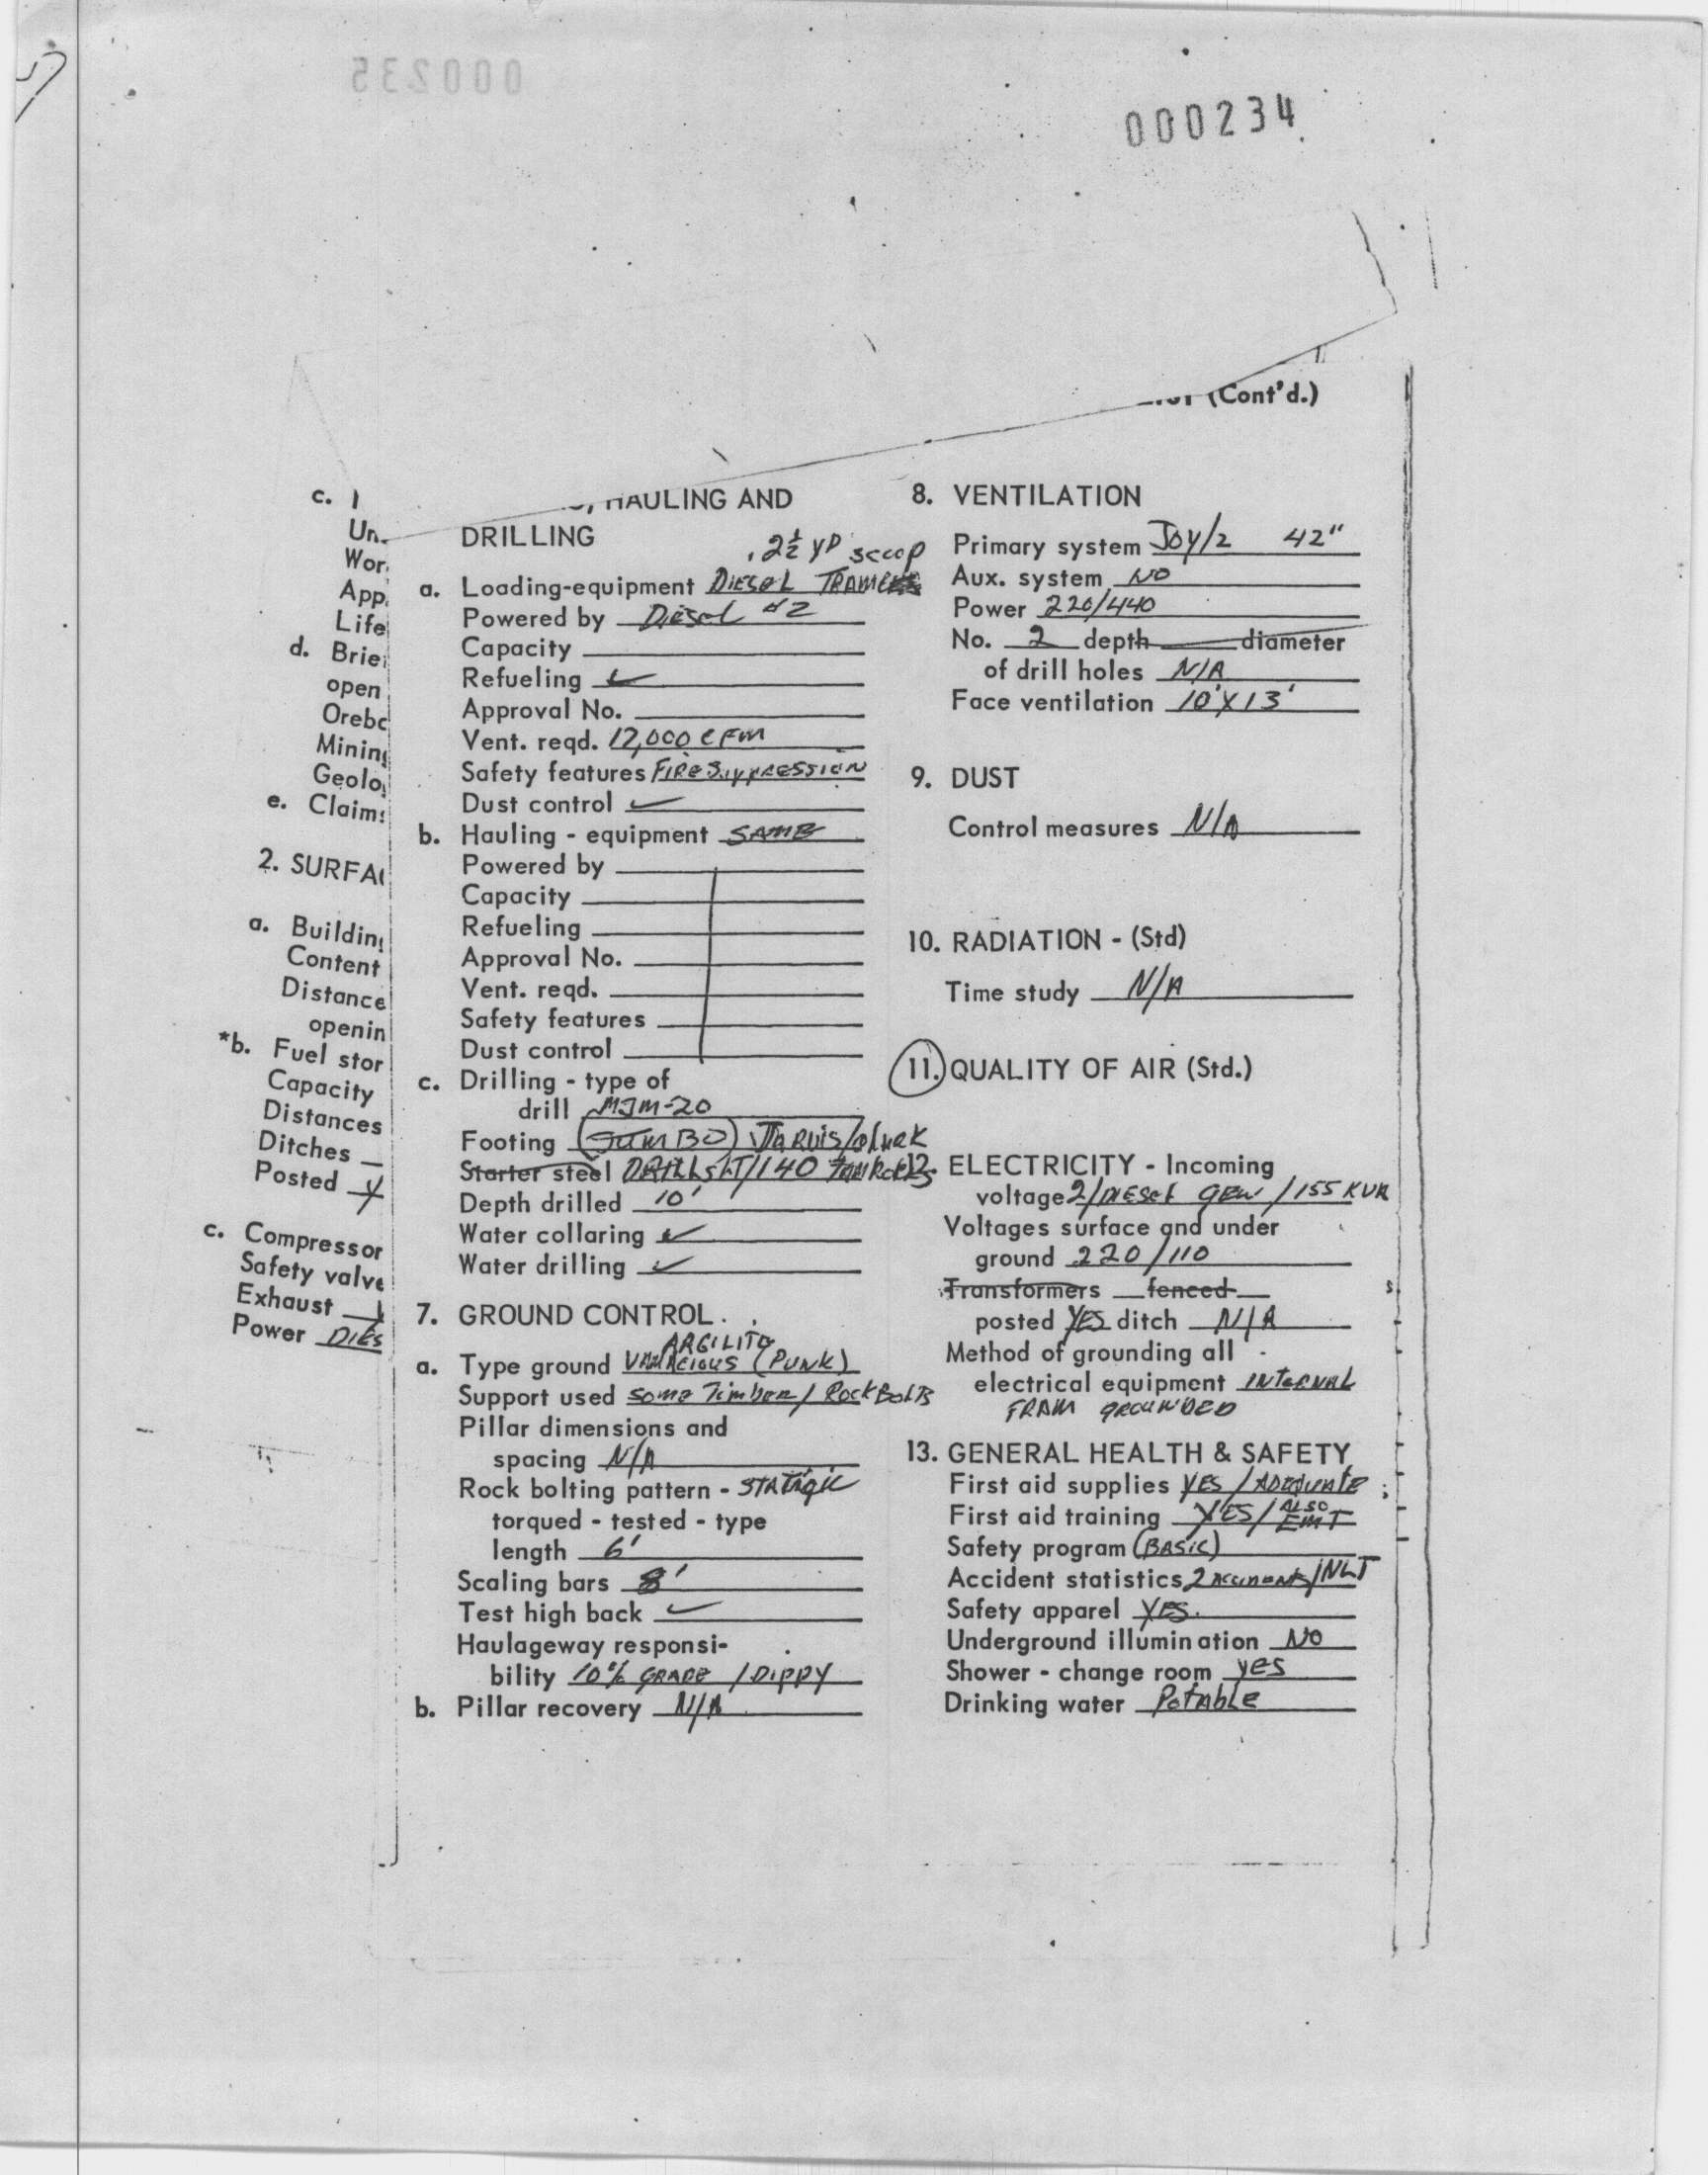 000235
000234
(Cont'd.)
c.
Un.
Wor
App.
Life
d. Brie
open
Oreb
Minin
Geolo
e. Claim
2. SURFA
a. Buildin
Content
Distance
openin
*b. Fuel stor
Capacity
Distances
Ditches
Posted y
c. Compressor
Safety valve
Exhaust
Power DIES
HAULING AND
DRILLING
2½ YD scoop
a. Loading-equipment DIESEL
Powered by Diesel #2
Capacity
Refueling ✓
Approval No.
Vent. reqd. 12,000 CFM
Safety features FIRE SUPPRESSION
Dust control ✓
b. Hauling - equipment SAME
Powered by
Capacity
Refueling
Approval No.
Vent. reqd.
Safety features
Dust control
c. Drilling - type of
drill MJM-20
Footing (JUMBO) JARVIS/CLARK
Starter steel
Depth drilled 10'
Water collaring ✓
Water drilling ✓
7. GROUND CONTROL
ARGILITE
a. Type ground (PUNK)
Support used some Timber / Rock Bolts
Pillar dimensions and
spacing N/A
Rock bolting pattern -
torqued - tested - type
length 6'
Scaling bars 8'
Test high back ✓
Haulageway responsi-
bility 10% GRADE / DIPPY
b. Pillar recovery N/A
8. VENTILATION
Primary system JOY/2 42"
Aux. system NO
Power 220/440
No. 2 depth diameter
of drill holes N/A
Face ventilation 10'X13'
9. DUST
Control measures N/A
10. RADIATION - (Std)
Time study N/A
11. QUALITY OF AIR (Std.)
12. ELECTRICITY - Incoming
voltage 2/DIESEL GEN /155 KVA
Voltages surface and under
ground 220/110
Transformers fenced
posted YES ditch N/A
Method of grounding all
electrical equipment INTERNAL
FRAM GROUNDED
13. GENERAL HEALTH & SAFETY
First aid supplies YES / ADEQUATE
First aid training YES / ALSO EMT
Safety program (BASIC)
Accident statistics 2 accidents/NLT
Safety apparel YES.
Underground illumination NO
Shower - change room yes
Drinking water PotAble